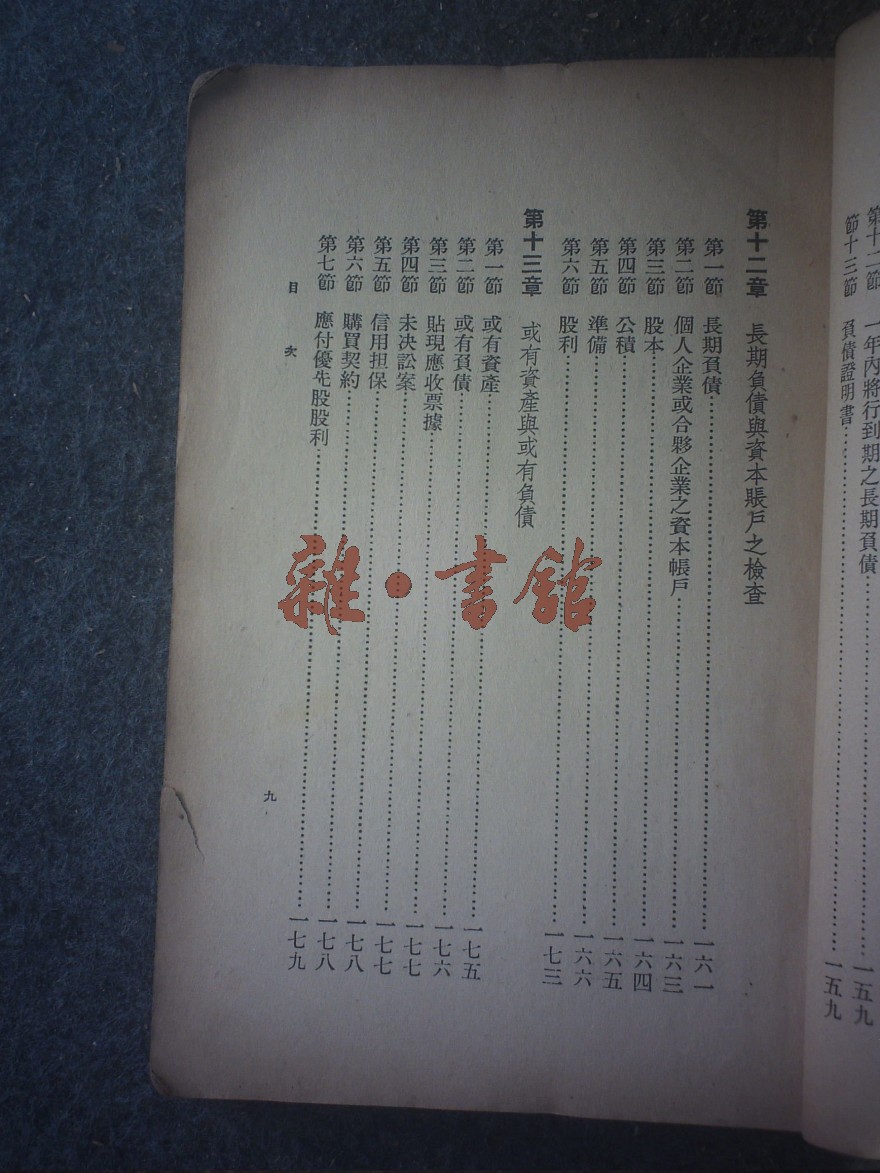 第十二節 一年內將行到期之長期負債 一五九
節十三節 負債證明書 一五九
第十二章 長期負債與資本賬戶之檢查
第一節 長期負債 一六一
第二節 個人企業或合夥企業之資本帳戶 一六三
第三節 股本 一六四
第四節 公積 一六五
第五節 準備 一六六
第六節 股利 一七三
第十三章 或有資產與或有負債
第一節 或有資產 一七五
第二節 或有負債 一七六
第三節 貼現應收票據 一七六
第四節 未決訟案 一七七
第五節 信用担保 一七七
第六節 購買契約 一七八
第七節 應付優先股股利 一七九
目次
九
雜·書館